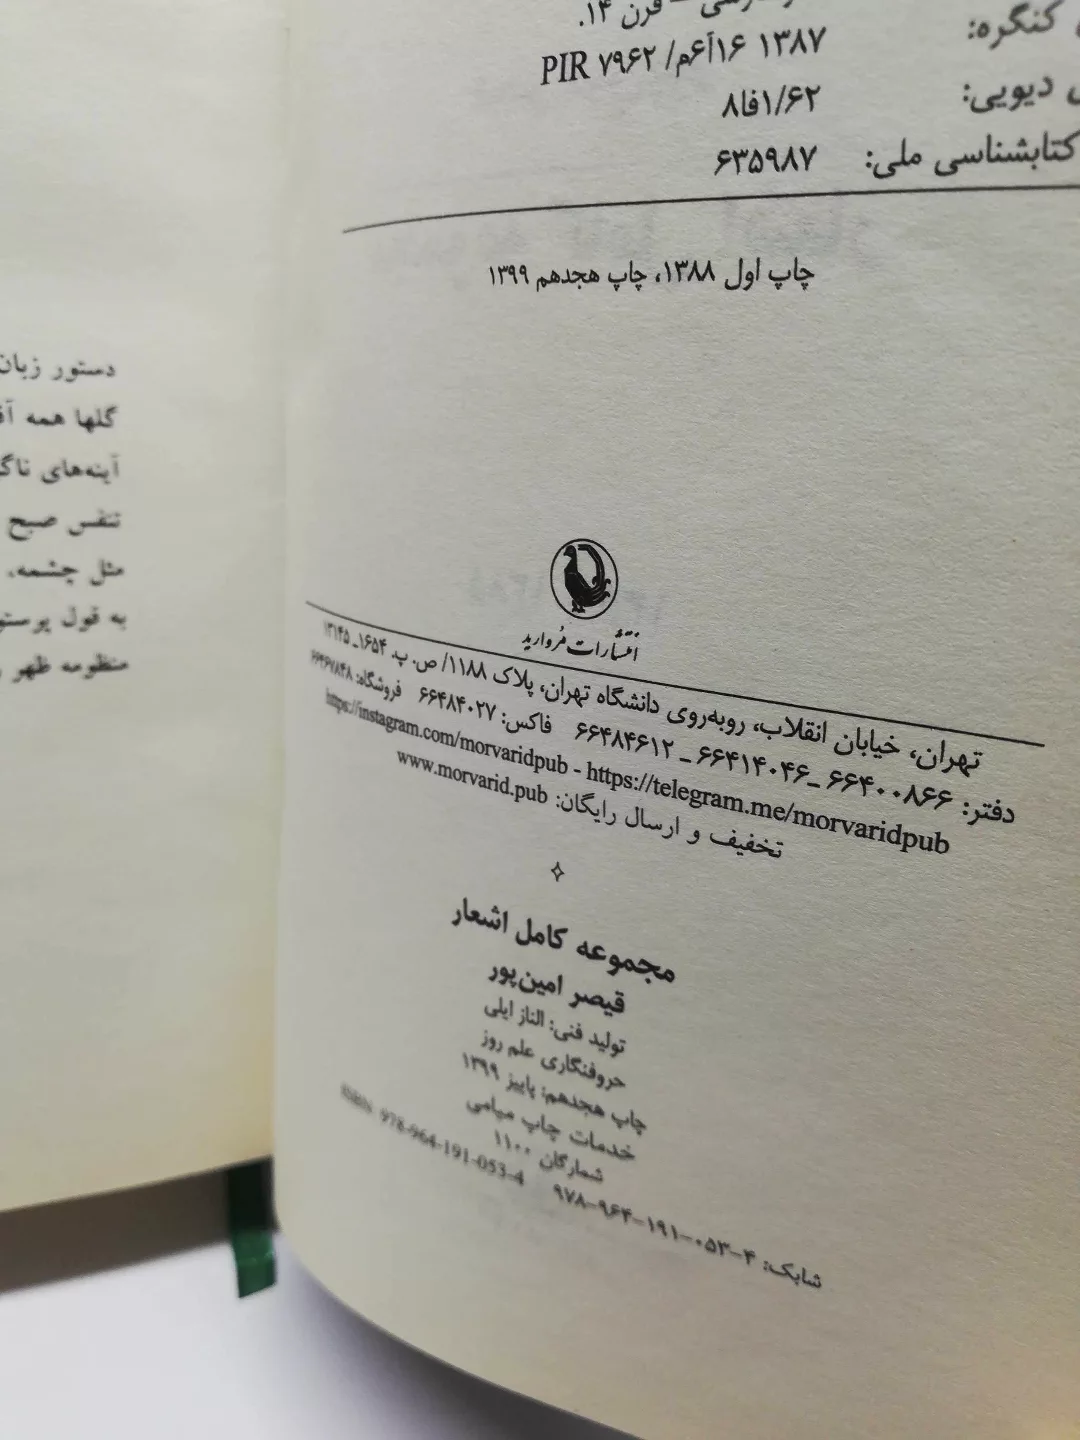 قرن ۱۴.
کنگره: ۱۳۸۷ ۱۶آ۶م/ PIR ۷۹۶۲
دیویی: ۸فا۱/۶۲
کتابشناسی ملی: ۶۳۵۹۸۷
چاپ اول ۱۳۸۸، چاپ هجدهم ۱۳۹۹
انتشارات مروارید
تهران، خیابان انقلاب، روبه‌روی دانشگاه تهران، پلاک ۱۱۸۸/ ص. پ. ۱۶۵۴ـ ۱۳۱۴۵
دفتر: ۶۶۴۰۰۸۶۶ ـ ۶۶۴۱۴۰۴۶ ـ ۶۶۴۸۴۶۱۲ فاکس: ۶۶۴۸۴۰۲۷ فروشگاه: ۶۶۴۶۷۸۴۸
https://instagram.com/morvaridpub - https://telegram.me/morvaridpub
تخفیف و ارسال رایگان: www.morvarid.pub
مجموعه کامل اشعار
قیصر امین‌پور
تولید فنی: الناز ایلی
حروفنگاری علم روز
چاپ هجدهم: پاییز ۱۳۹۹
خدمات چاپ میامی
شمارگان ۱۱۰۰
شابک: ۴-۰۵۳-۱۹۱-۹۶۴-۹۷۸ ISBN: 978-964-191-053-4
دستور زبان
گلها همه
آینه‌های
تنفس صبح
مثل چشمه،
به قول
منظومه ظهر